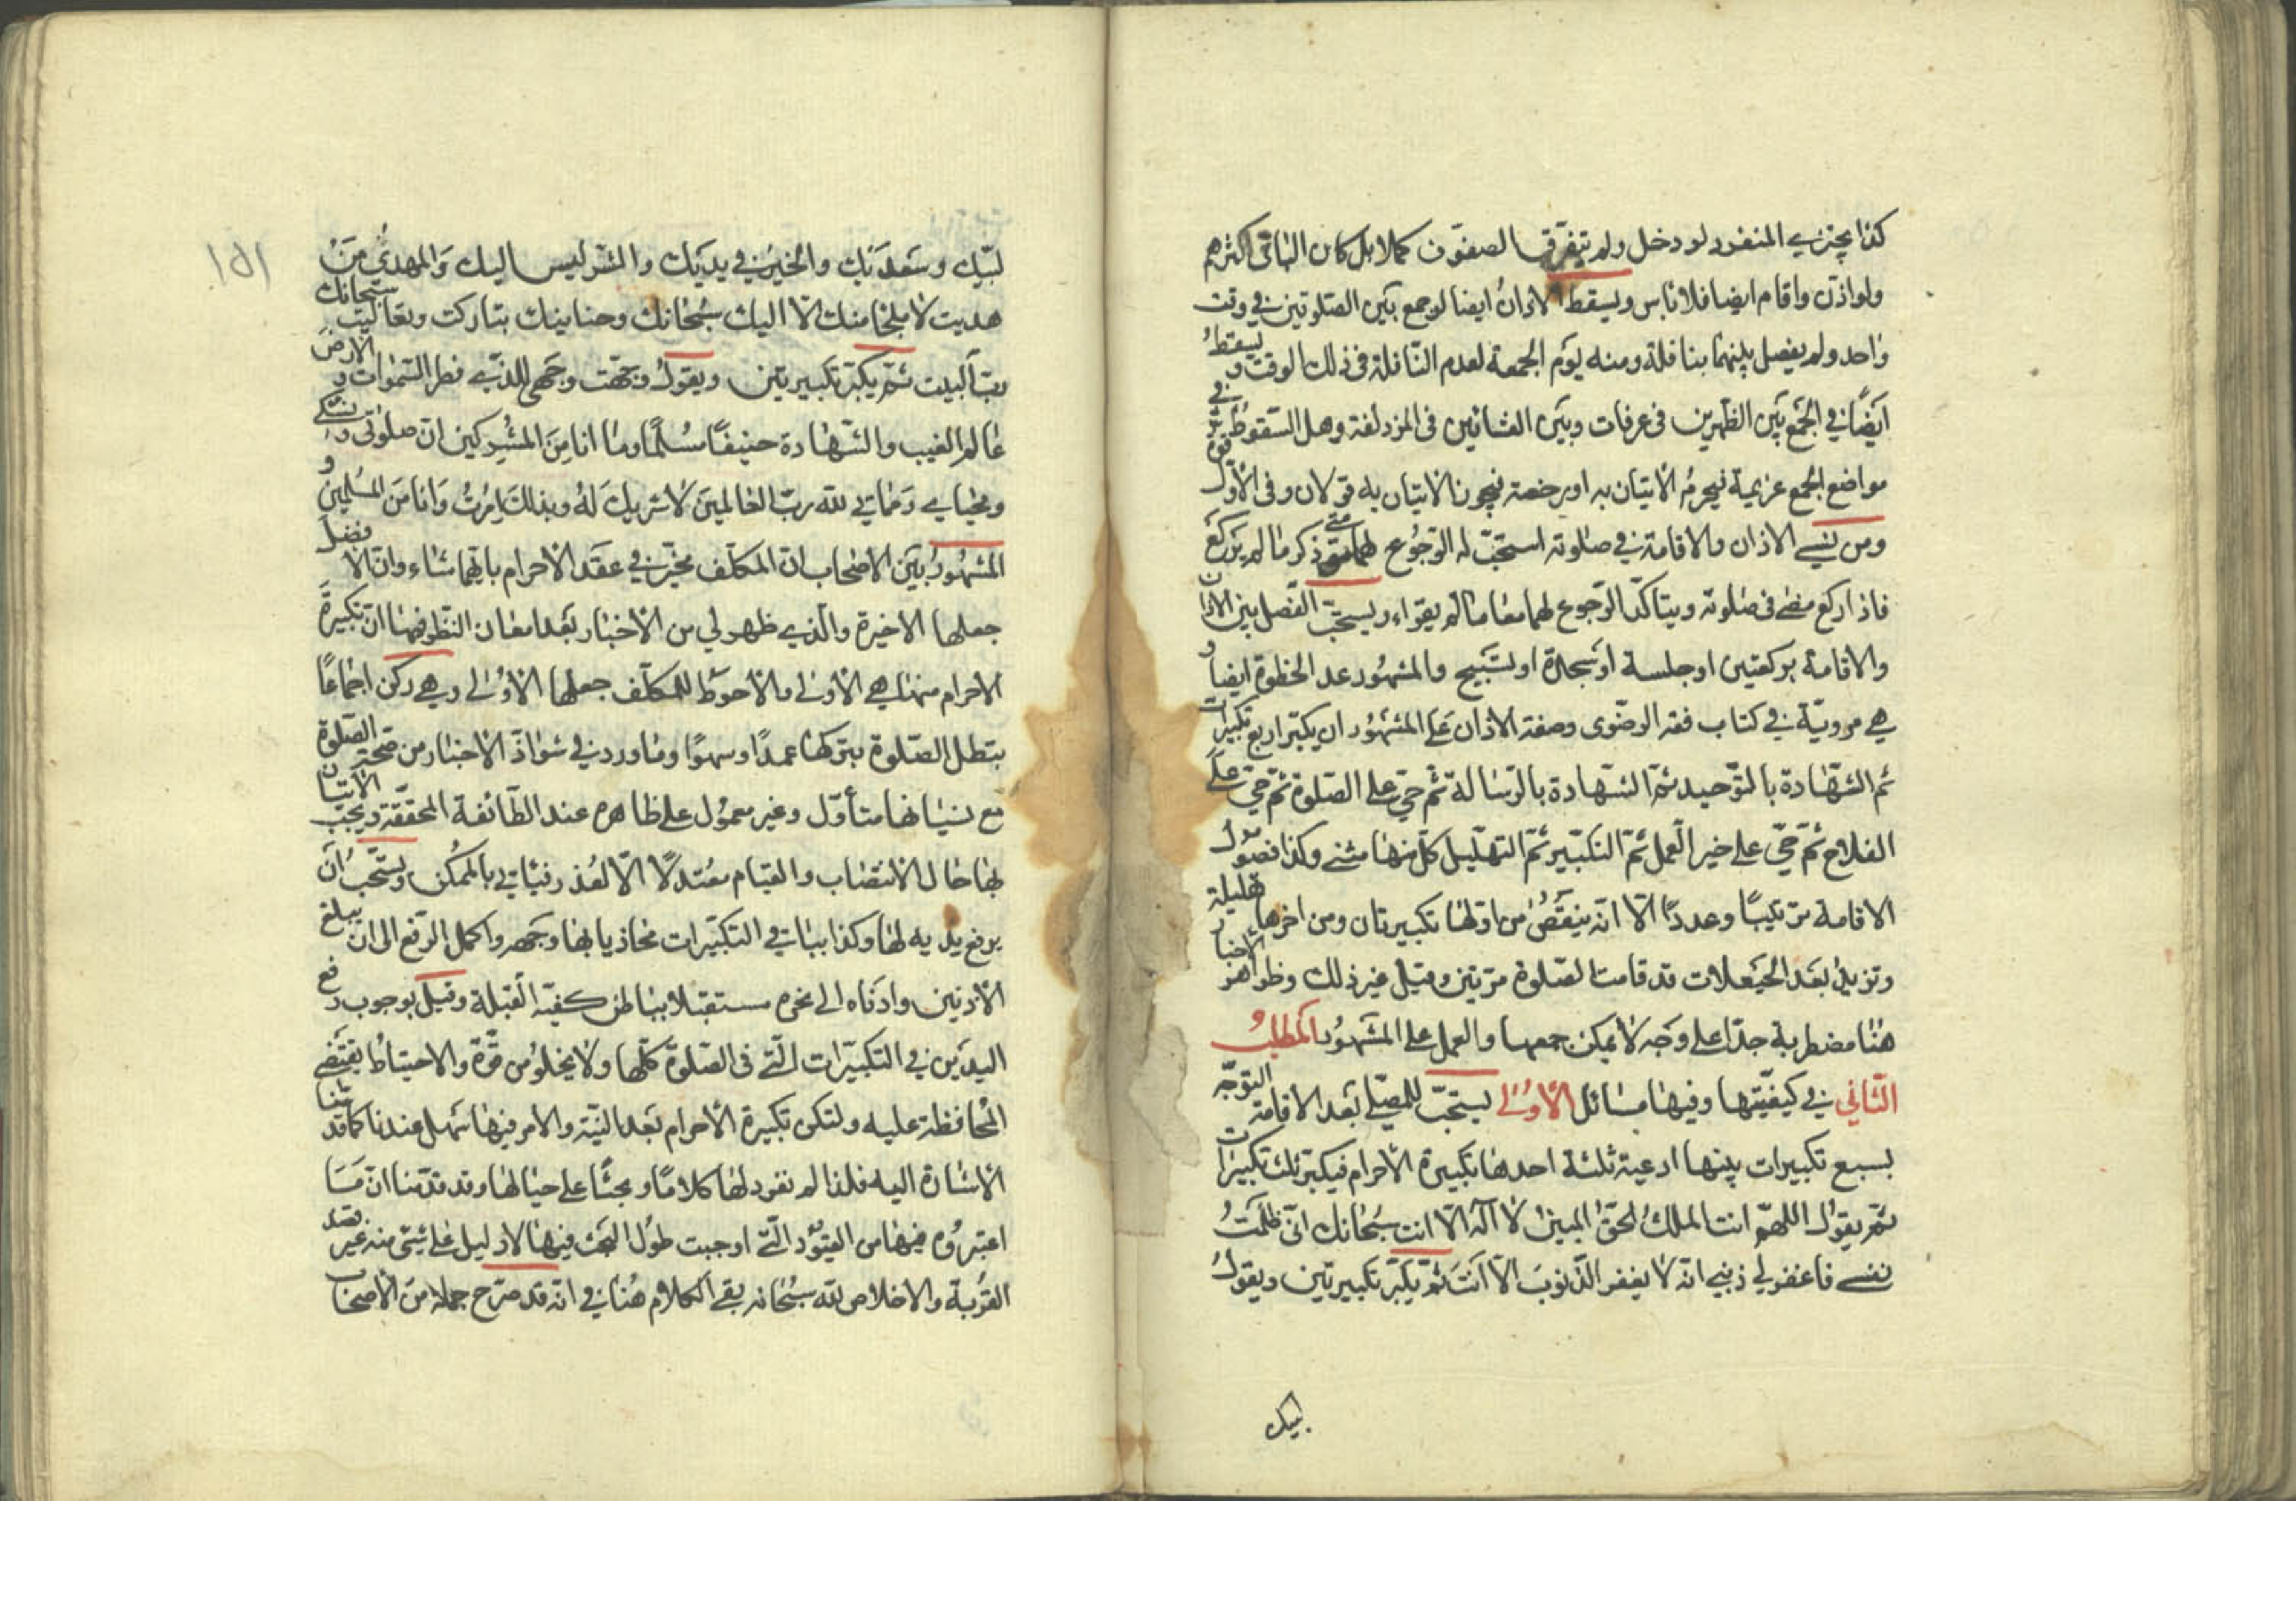 كذا يجتزي المنفرد لو دخل ولم يتفرق الصفوف كملا بل كان الباقي اكثرهم
ولو اذن واقام ايضا فلا باس ويسقط الاذان ايضا لو جمع بين الصلوتين في وقت
واحد ولم يفصل بينهما بنافلة ومنه يوم الجمعة لعدم النافلة في ذلك الوقت ويسقط
ايضًا في الجمع بين الظهرين في عرفات وبين العشائين في المزدلفة وهل السقوط في
مواضع الجمع عزيمة فيحرم الاتيان به او رخصة فيجوز الاتيان به قولان وفى الأول قوة
ومن نسي الاذان والاقامة في صلوته استحبّ له الرّجوع لهما متى ذكر ما لم يركع
فاذا ركع مضى في صلوته ويتاكّد الرّجوع لهما معا ما لم يقراء ويستحبّ الفصل بين الاذان
والاقامة بركعتين او جلسة او سجدة او تسبيح والمشهور عد الخطوة ايضا و
هي مرويّة في كتاب فقه الرضوى وصفة الاذان على المشهور ان يكبّر اربع تكبيرات
ثم الشهادة بالتوحيد ثم الشهادة بالرّسالة ثم حيّ على الصّلوة ثم حيّ على
الفلاح ثم حيّ على خير العمل ثمّ التكبير ثمّ التهليل كلّ منها مثنى وكذا فصول
الاقامة ترتيبًا وعددًا الّا انّه ينقص من اوّلها تكبيرتان ومن اخرها تهليلة
وتزيد بعد الحيعلات قد قامت الصلوة مرتين وقيل غير ذلك وظواهر الأخبار
هنا مضطربة جدّا على وجه لا يمكن جمعها والعمل على المشهور المطلب
الثّاني في كيفيّتها وفيها مسائل الأولى يستحبّ للمصلّي بعد الاقامة التوجّه
بسبع تكبيرات بينها ادعية ثلثة احدها تكبيرة الاحرام فيكبر ثلث تكبيرات
ثمّ يقول اللهمّ انت الملك الحقّ المبين لا اله الّا انت سبحانك انّي ظلمت
نفسي فاغفر لي ذنبي انّه لا يغفر الذّنوب الّا انت ثمّ يكبّر تكبيرتين ويقول
لبيك
١٥١
لبّيك وسعديك والخير في يديك والشّر ليس اليك والمهديّ من
هديت لا ملجا منك الّا اليك سبحانك وحنانيك تباركت وتعاليت سبحانك
ربّ البيت ثمّ يكبّر تكبيرتين ويقول وجّهت وجهي للذي فطر السّموات والارض
عالم الغيب والشّهادة حنيفًا مسلمًا وما انا من المشركين انّ صلوتي ونسكي
ومحياي ومماتي لله ربّ العالمين لا شريك له وبذلك امرت وانا من المسلمين و
المشهور بين الاصحاب انّ المكلّف مخيّر في عقد الاحرام بايّها شاء وانّ الافضل
جعلها الاخيرة والّذي ظهر لي من الاخبار بعد امعان النّظر فيها انّ تكبيرة
الاحرام منها هي الاولى والاحوط للمكلّف جعلها الأولى وهي ركن اجماعًا
تبطل الصّلوة بتركها عمدًا وسهوًا وما ورد في شواذّ الاخبار من صحّة الصّلوة
مع نسيانها متأوّل وغير معمول على ظاهره عند الطّائفة المحقّقة ويجب الاتيان
بها حال الانتصاب والقيام معتدلًا الّا لعذر فياتي بالممكن ويستحب ان
يرفع يديه لها وكذا بباقي التكبيرات محاذيا بها وجهه واكمل الرّفع الى ان يبلغ
الاذنين وادناه الى نحره مستقبلا بباطن كفّيه القبلة وقيل بوجوب رفع
اليدين في التكبيرات الّتي في الصّلوة كلّها ولا يخلو من قوّة والاحتياط يقتضي
المحافظة عليه ولتكن تكبيرة الاحرام بعد النّية والامر فيها سهل عندنا كما قدّمنا
الاشارة اليه فلذا لم نفرد لها كلامًا وبحثًا على حيالها وقد قدّمنا انّ ما
اعتبروه فيها من القيود الّتي اوجبت طول البحث فيها لا دليل على شيء منه غير قصد
القربة والاخلاص لله سبحانه بقي الكلام هنا في انّه قد صرّح جملة من الأصحاب